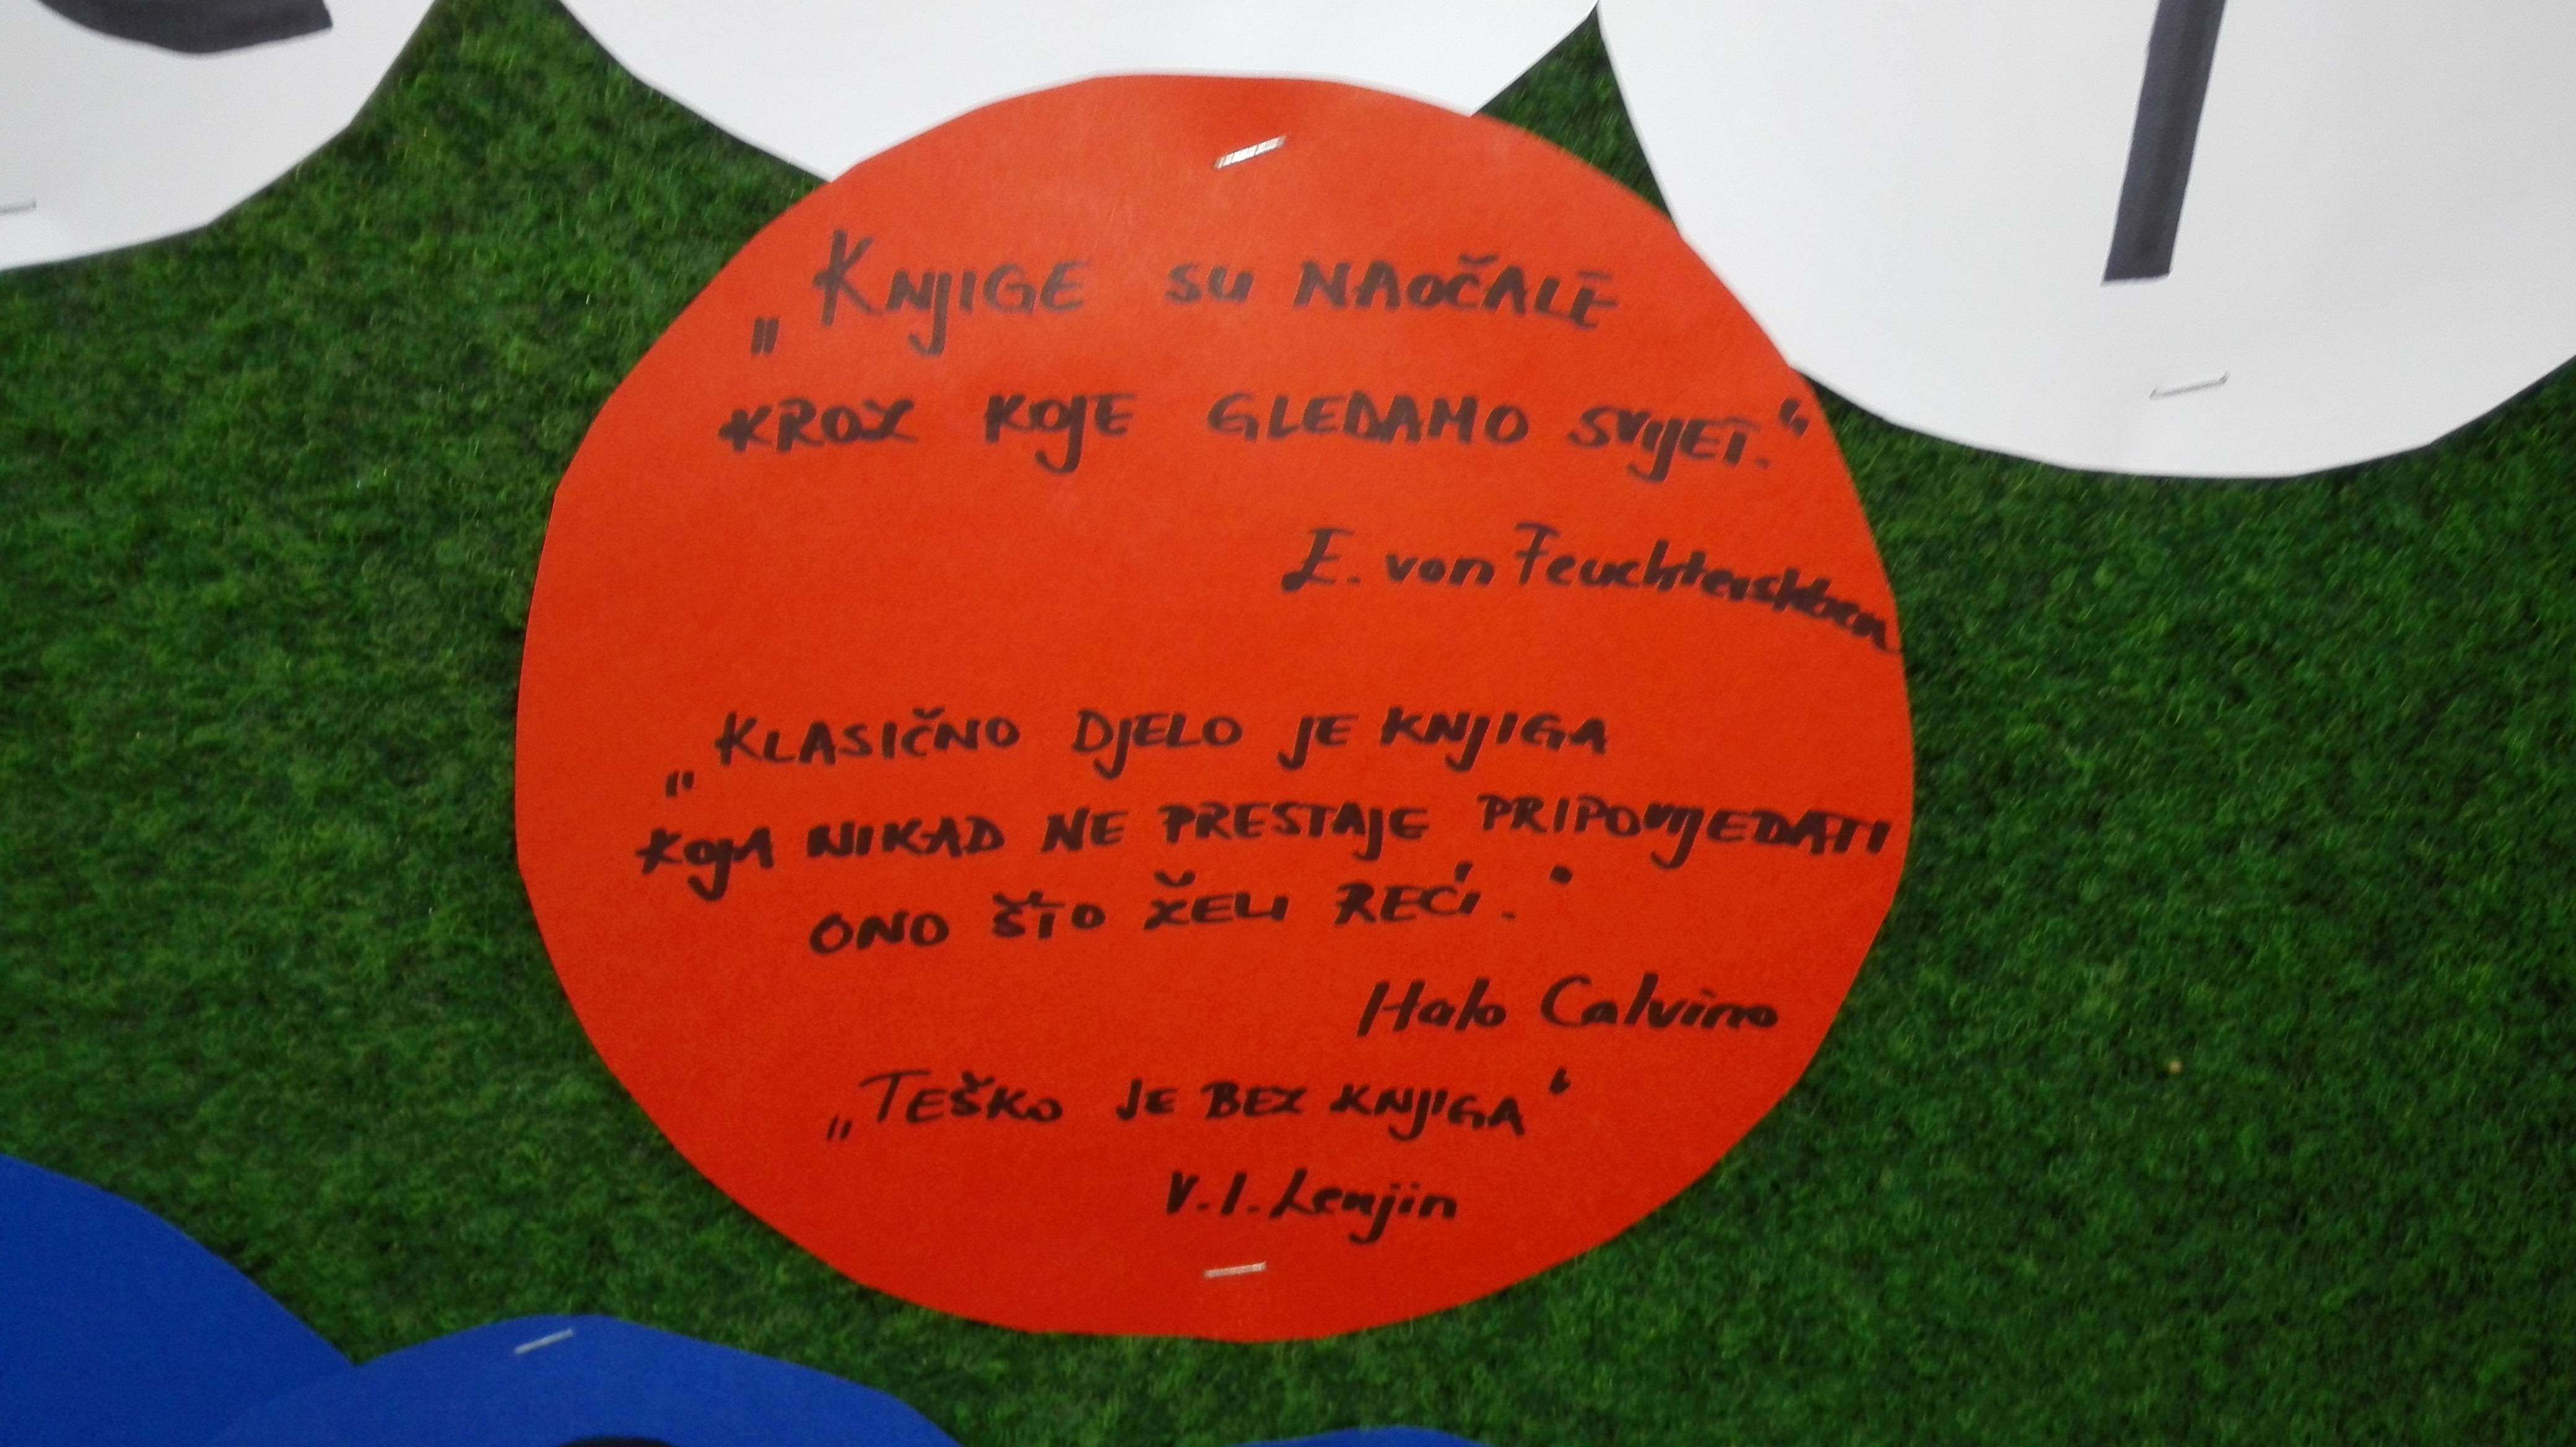 „KNJIGE SU NAOČALE
KROZ KOJE GLEDAMO SVIJET.“
E. von Feuchtersleben
„KLASIČNO DJELO JE KNJIGA
KOJA NIKAD NE PRESTAJE PRIPOVIJEDATI
ONO ŠTO ŽELI REĆI.“
Italo Calvino
„TEŠKO JE BEZ KNJIGA“
V. I. Lenjin